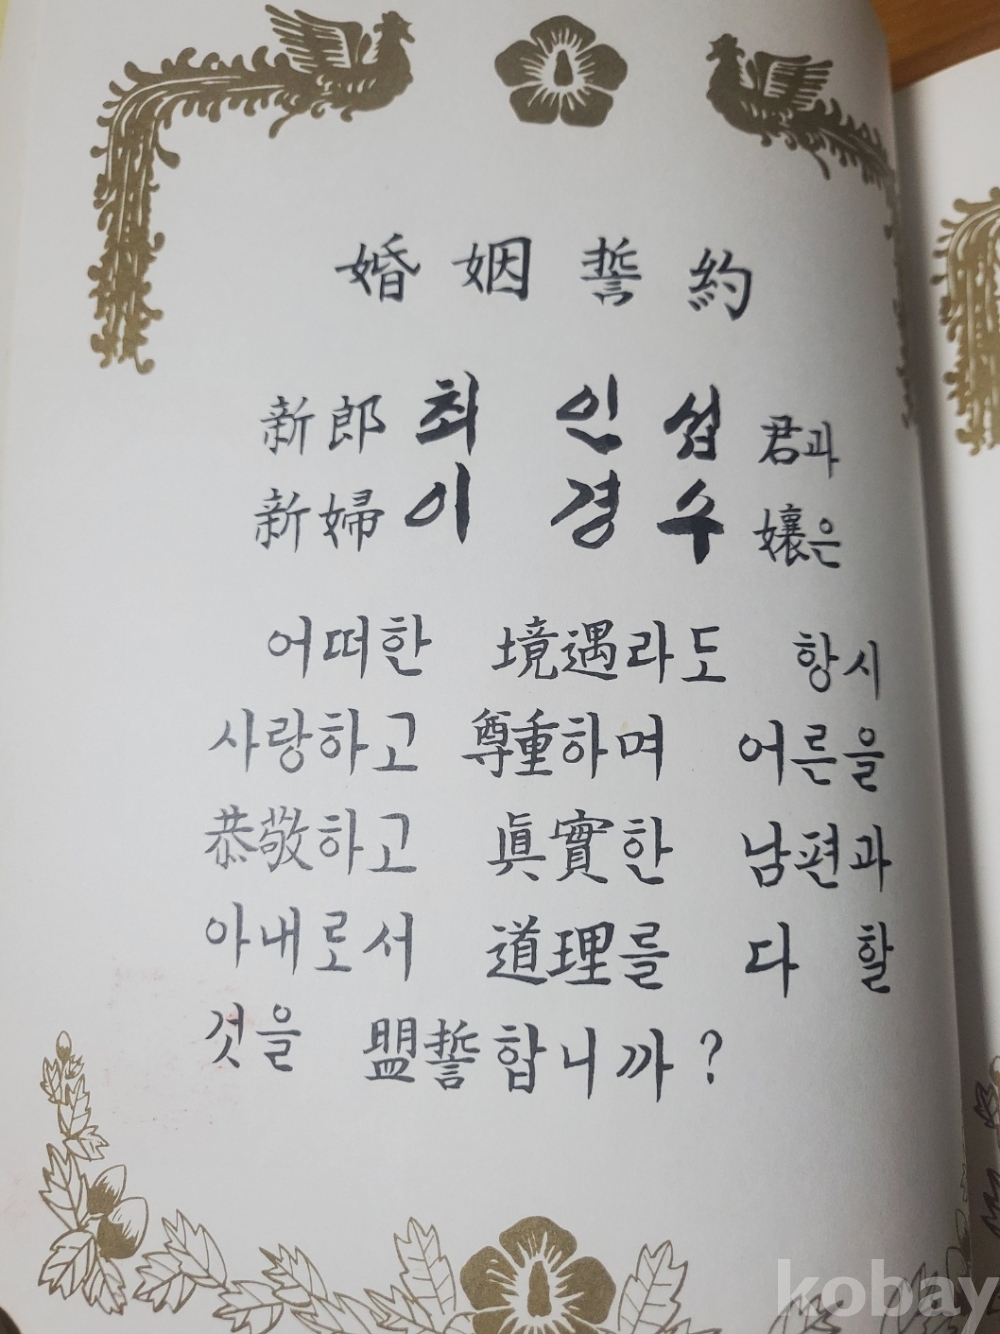 婚姻誓約
新郎 최 인 섭 君과
新婦 이 경 수 孃은
어떠한 境遇라도 항시
사랑하고 尊重하며 어른을
恭敬하고 眞實한 남편과
아내로서 道理를 다 할
것을 盟誓합니까?
kobay